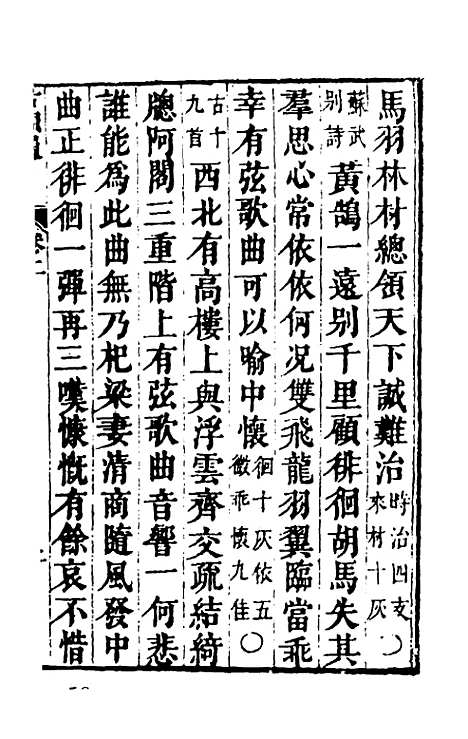 馬羽林材總領天下誠難治時治四支來材十灰○
蘇武别詩黃鵠一遠别千里顧徘徊胡馬失其
羣思心常依依何况雙飛龍羽翼臨當乖
幸有弦歌曲可以喻中懷徊十灰依五微乖懷九佳○
古十九首西北有高樓上與浮雲齊交疏結綺
牕阿閣三重階上有弦歌曲音響一何悲
誰能爲此曲無乃杞梁妻清商隨風發中
曲正徘徊一彈再三嘆慷慨有餘哀不惜